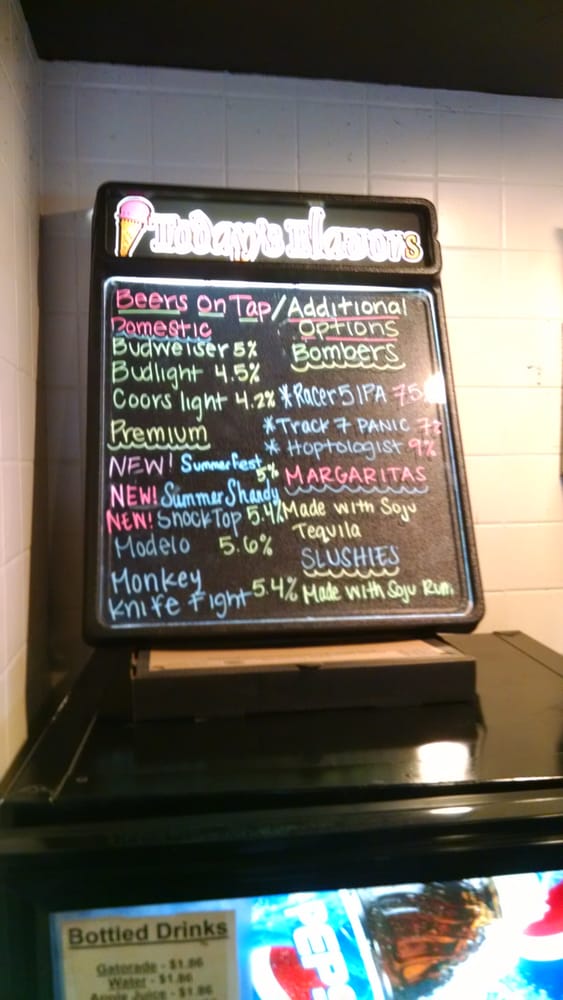 Today's Flavors
Beers On Tap/Additional Options
Domestic
Budweiser 5%
Budlight 4.5%
Coors light 4.2%
Premium
NEW! Summerfest 5%
NEW! Summer Shandy
NEW! Shock Top 5.4%
Modelo 5.6%
Monkey
Knife Fight 5.4%
Bombers
*Racer 5 IPA 75
*Track 7 PANIC 73
* Hoptologist 9%
MARGARITAS
Made with Soju
Tequila
SLUSHIES
Made with Soju Rum.
Bottled Drinks
Gatorade - $1.86
Water - $1.86
Apple Juice - $1.86
PEPS